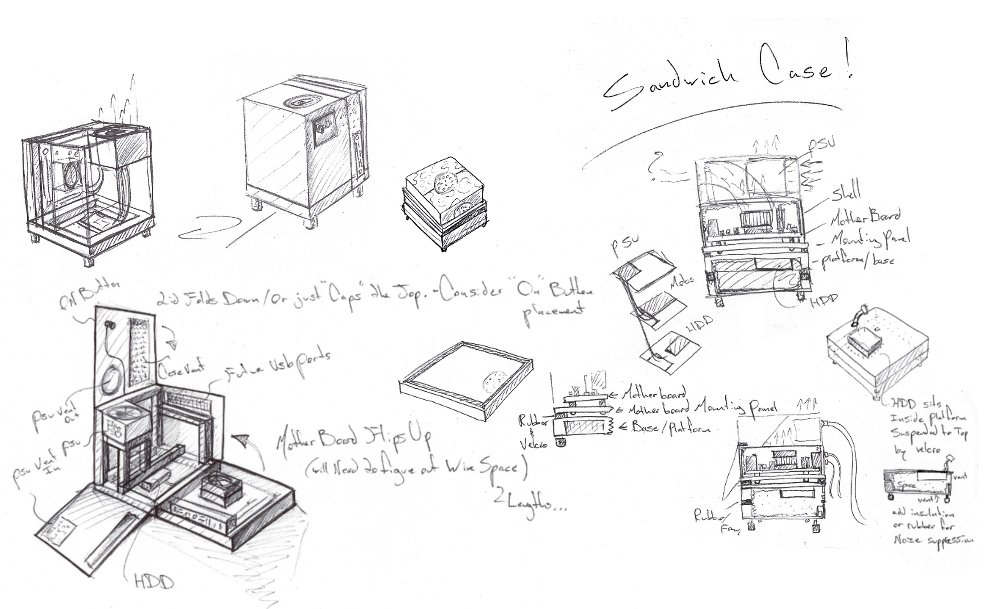 Sandwich Case!
PSU
?
Shell
MotherBoard
Mounting Panel
platform/base
HDD
PSU
Mobo
HDD
ON Button
Lid Folds Down/or just "Caps" the Top. - Consider "On" Button
placement
Case Vent
Future Usb Ports
PSU Vent
out
PSU
PSU Vent
In
MotherBoard Flips Up
(will Need to figure out Wire Space)
2 Lengths...
HDD
Motherboard
Motherboard Mounting panel
Base/platform
Rubber
&
Velcro
Rubber
HDD sits
Inside platform
Suspended to Top
by velcro
Space
vent
vent
add insulation
or rubber for
Noise suppression